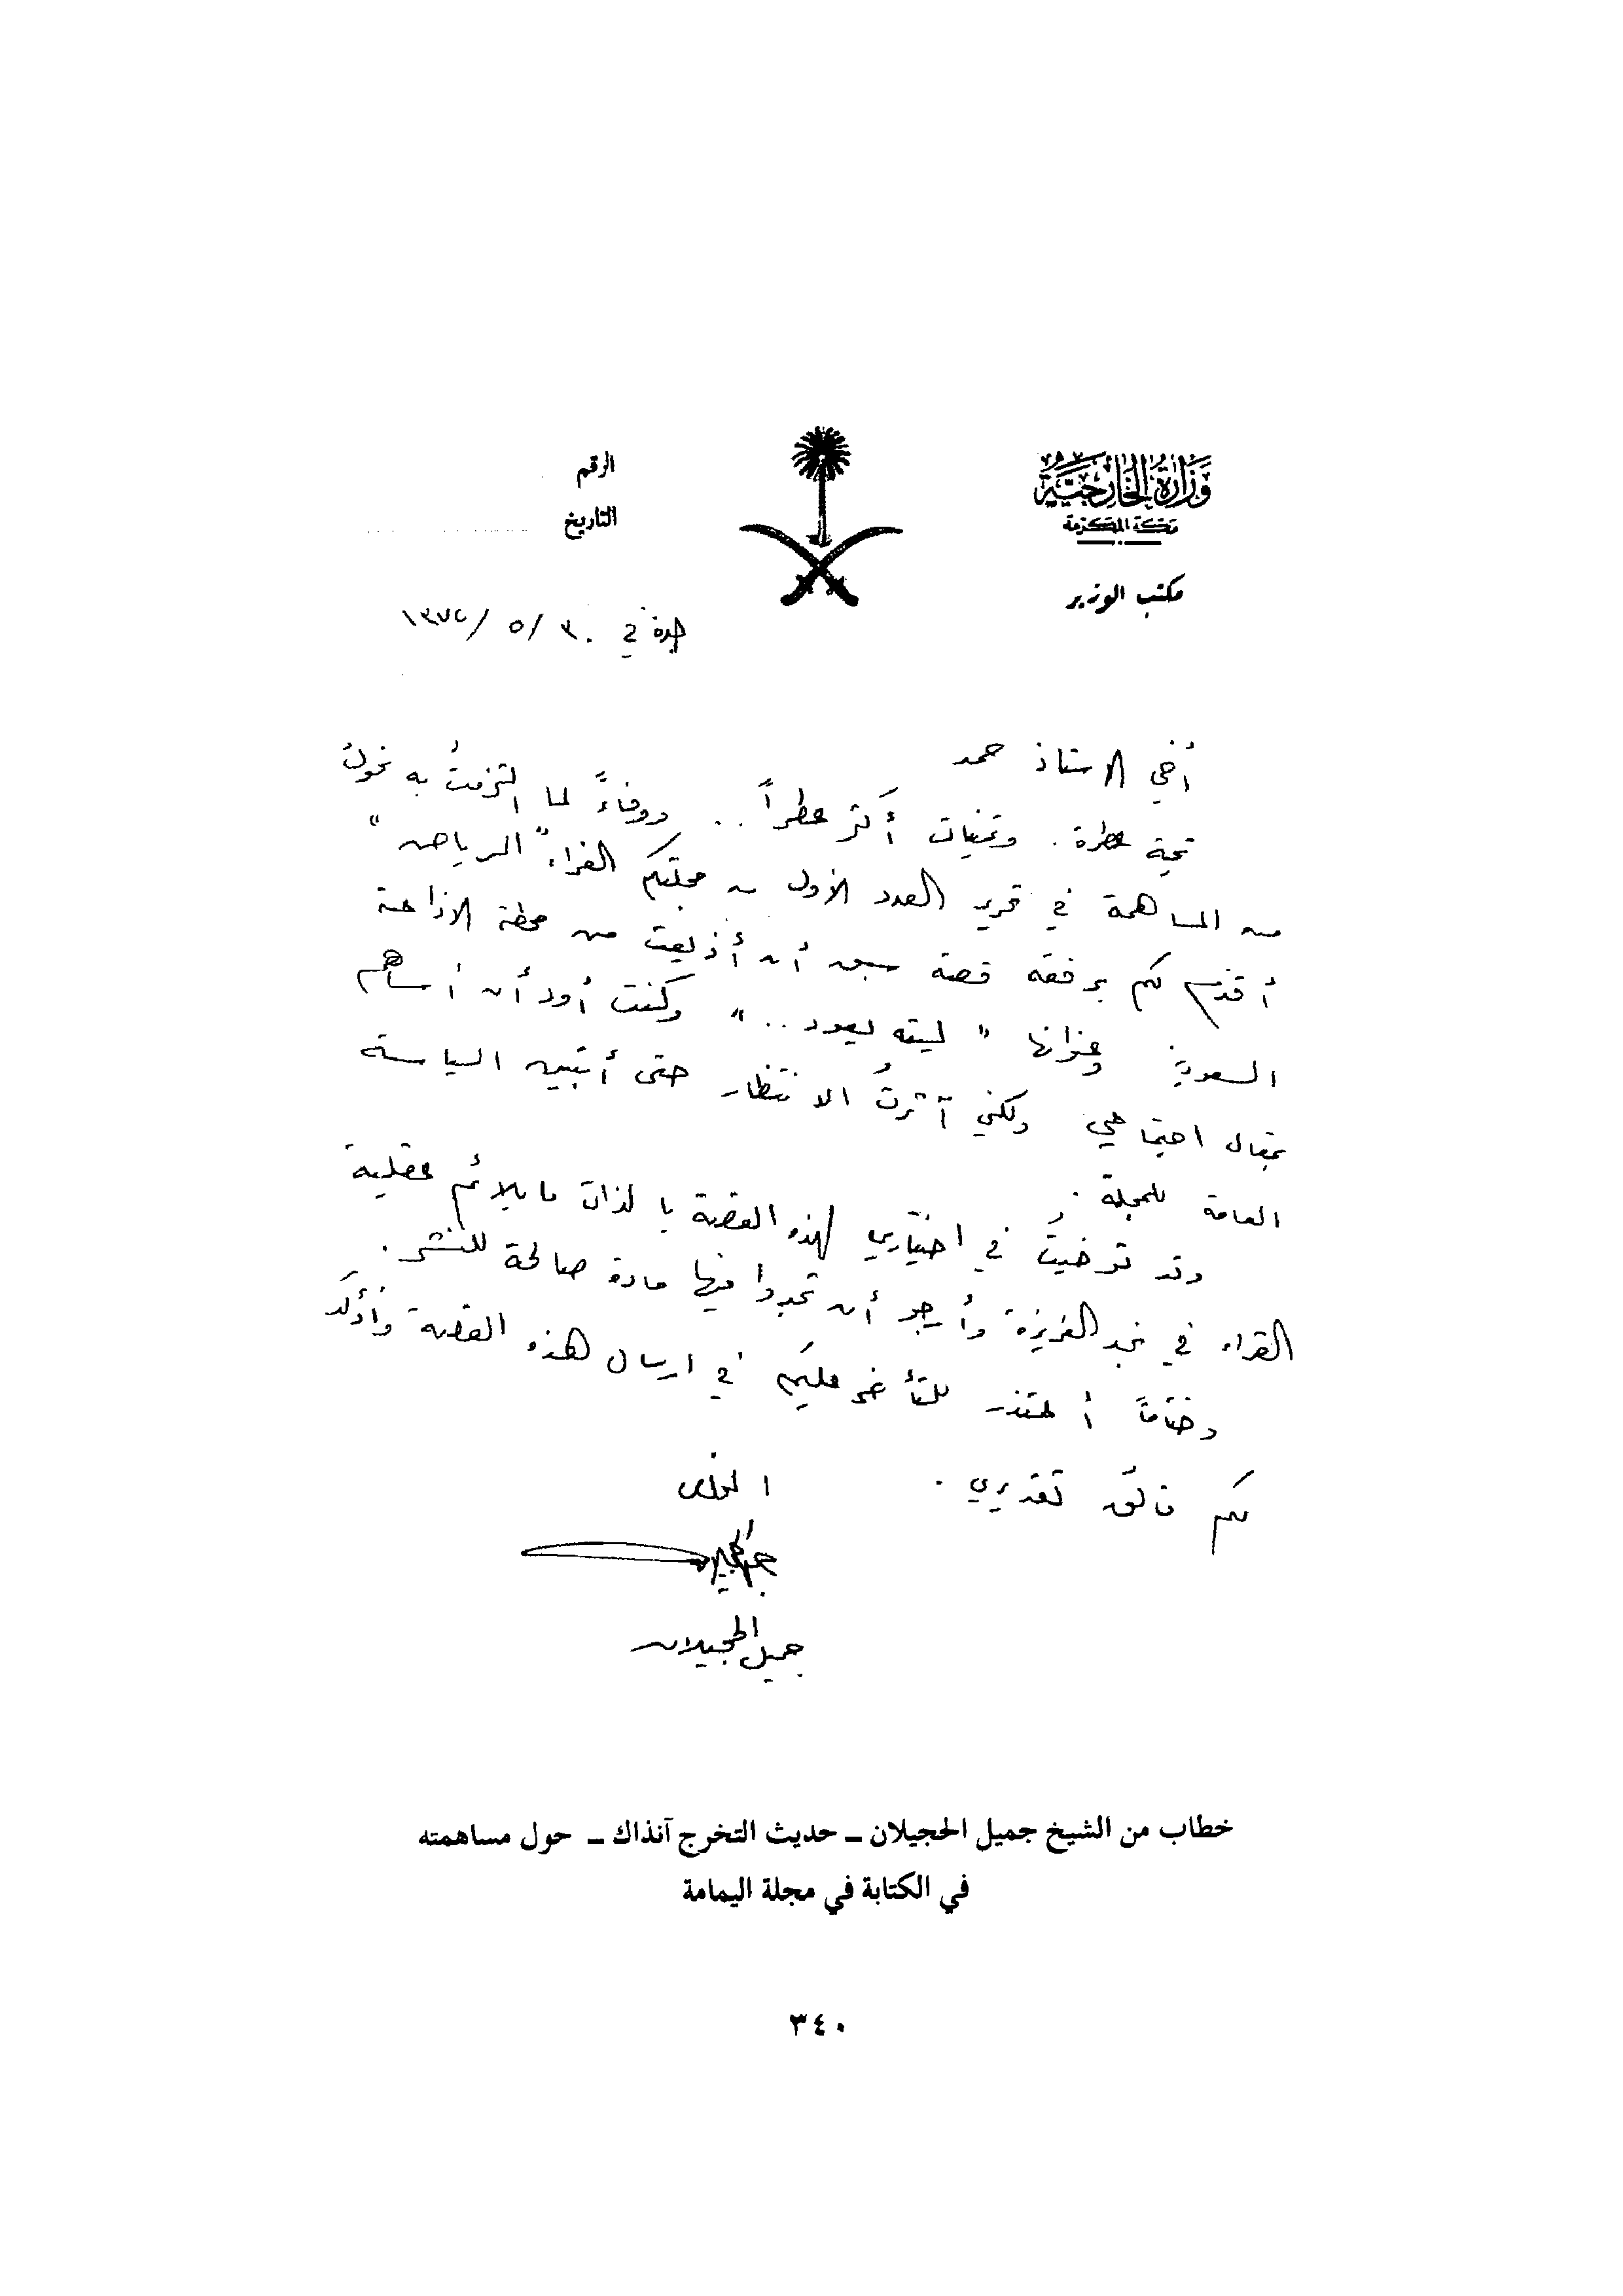 وزارة الخارجية
مكة المكرمة
مكتب الوزير
الرقم
التاريخ
جدة في ٣٠/٥/١٣٧٢
أخي الاستاذ حمد
تحية عطرة. وتمنيات أكثر عطراً.. ووفاءً لما التزمتُ به نحوكَ
من المساهمة في تحرير العدد الأول من مجلتكم الغراء "الرياض"
أقدّم لكم برفقه قصة سبق أن أُذيعت من محطة الاذاعة
السعودية وعنوانها "ليته يعود.." وكنت أود أن أساهم
بمقال اجتماعي ولكني آثرتُ الانتظار حتى أتبين السياسة
العامة للمجلة.
وقد توخيتُ في اختياري لهذه القصة بالذات ما يلائم عقلية
القراء في نجد العزيزة وأرجو أن تجدوا فيها مادة صالحة للنشر.
وختاماً أعتذر للتأخر عليكم في ارسال هذه القصة وأؤكد
لكم فائق تقديري.
المخلص
جميل الحجيلان
خطاب من الشيخ جميل الحجيلان ـ حديث التخرج آنذاك ـ حول مساهمته
في الكتابة في مجلة اليمامة
٣٤٠